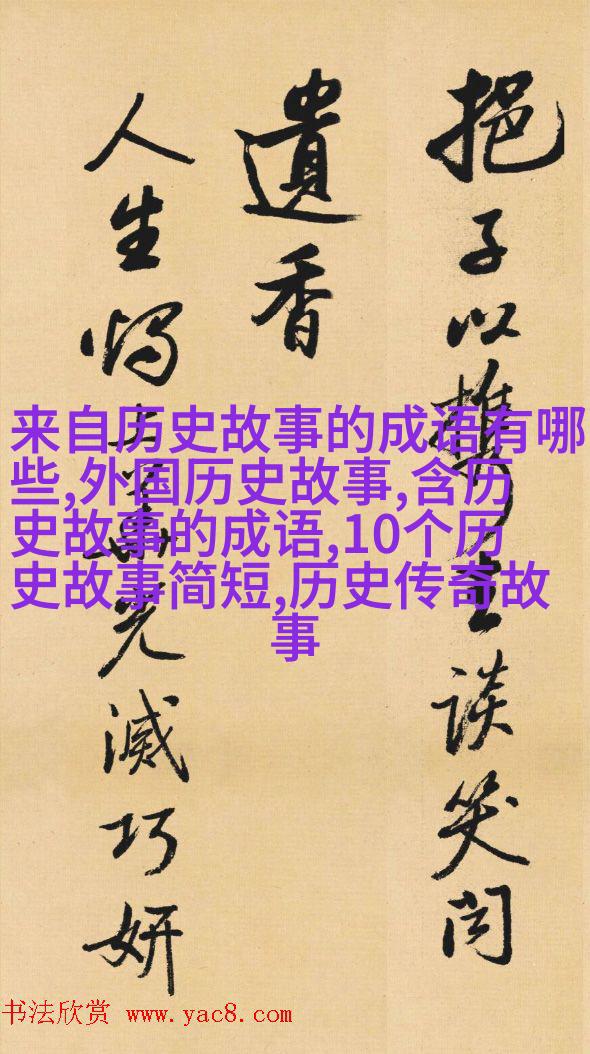 挹子以談笑間
遺香
人生光滅巧妍
来自历史故事的成语有哪
些,外国历史故事,含历
史故事的成语,10个历
史故事简短,历史传奇故
事
书法欣赏 www.yac8.com